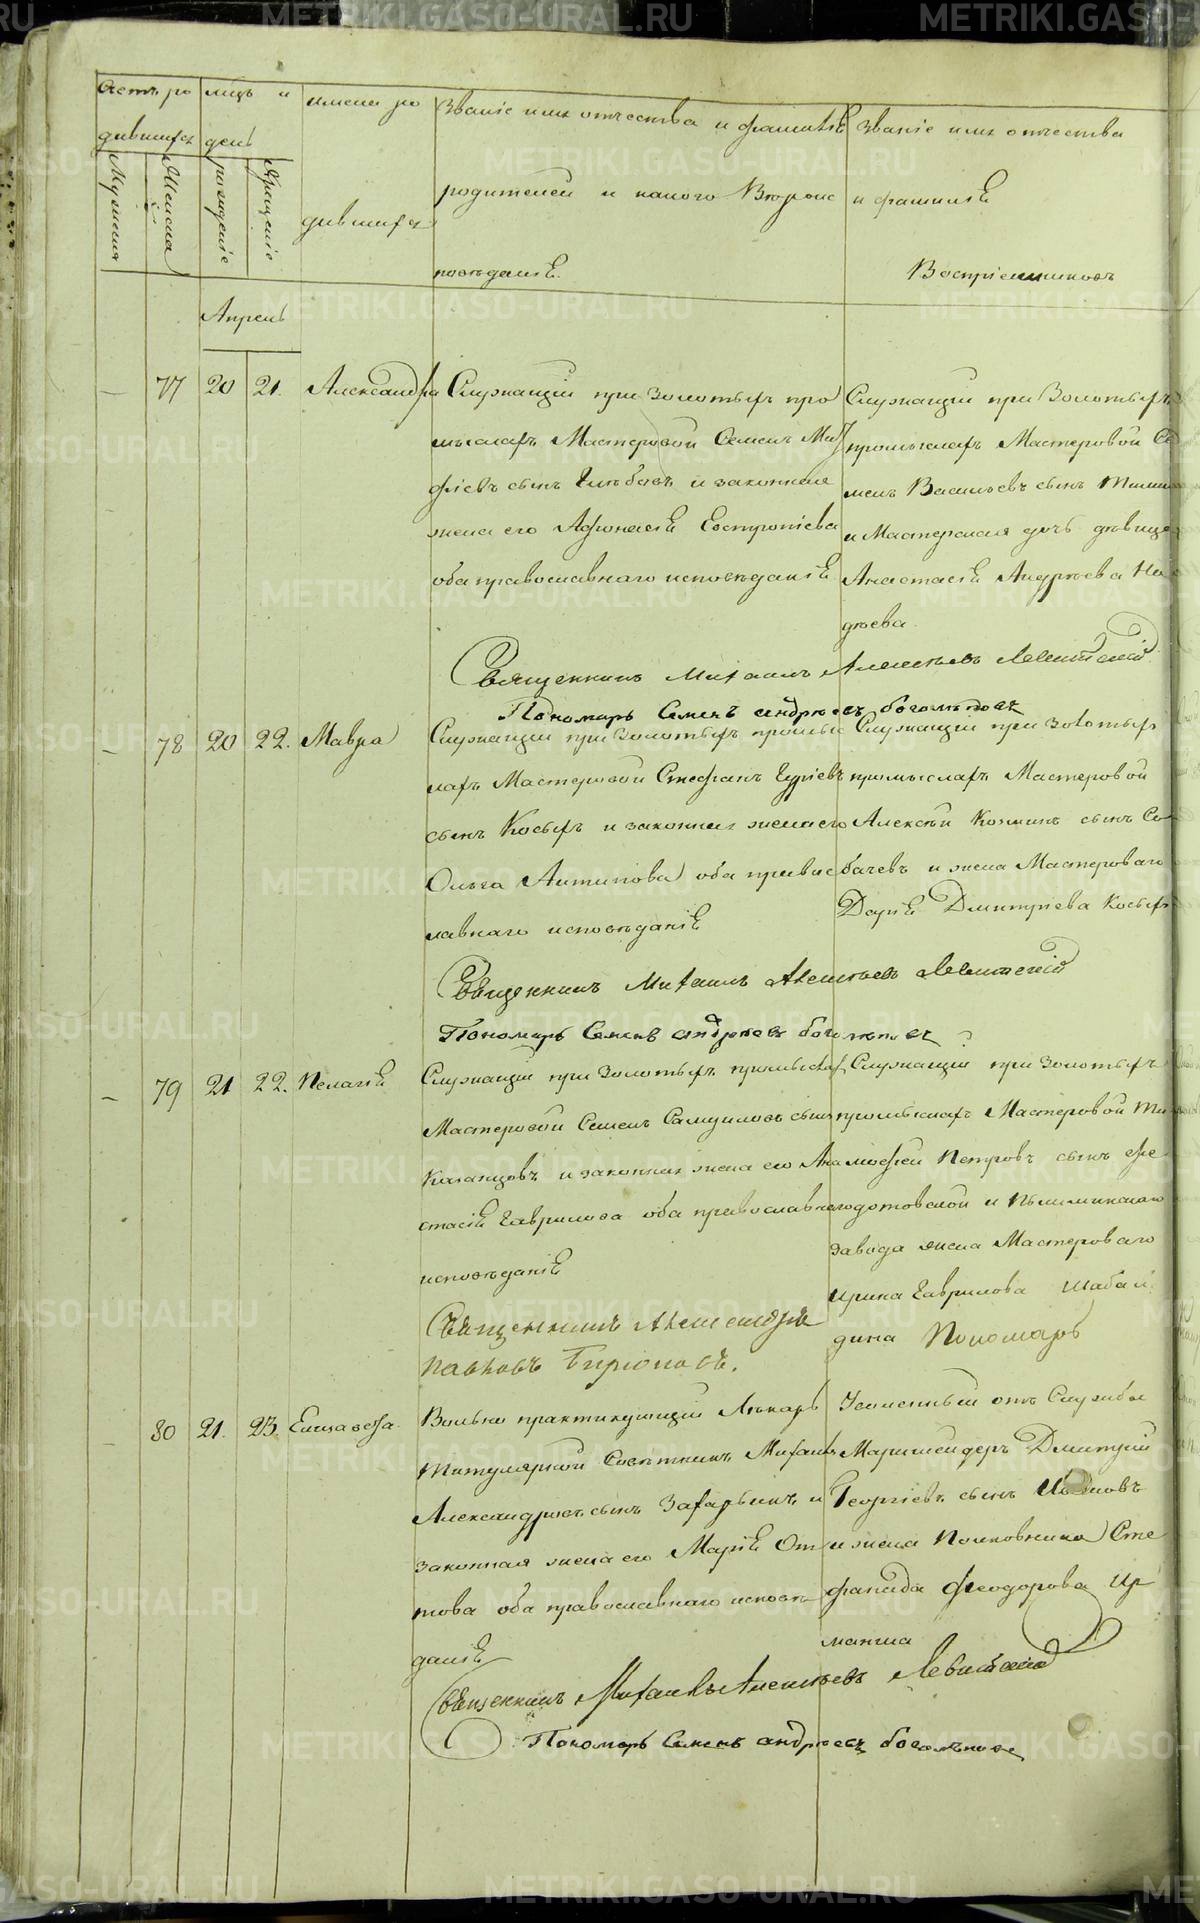 METRIKI.GASO-URAL.RU
Счетъ ро
дившихся
Мужеска
Женска
мцъ и
день
рожденіе
крещеніе
имена ро
дившихся
Званіе имя отчества и фамиліѣ
родителей и какого Вѣроис
повѣданіѣ
Званіе имя отчества
и фамиліѣ
Воспріемниковъ
Апрель
77 20 21. Александра
Служащій при Золотыхъ про
мыслахъ Мастеровой Семенъ
сынъ Глебовъ и законная
жена его Афонасіѣ Евстропіева
оба православнаго исповѣданіѣ
Служащій при Золотыхъ
промыслахъ Мастеровой Се
менъ Васильевъ сынъ
и Мастерская дочь дѣвица
Анастасіѣ Андреева
дѣева
Священникъ Михаилъ Алексѣевъ Левитскій
Пономарь Семенъ андреевъ боголѣповъ
78 20 22. Мавра
Служащій при Золотыхъ промыс
лахъ Мастеровой Стефанъ Гуріевъ
сынъ Косыхъ и законная жена его
Ольга Антипова оба правос
лавнаго исповѣданіѣ
Служащій при Золотыхъ
промыслахъ Мастеровой
Алексѣй Козминъ сынъ Со
бачевъ и жена Мастероваго
Даріѣ Дмитріева Косыхъ
Священникъ Михаилъ Алексѣевъ Левитскій
Пономарь Семенъ андреевъ боголѣповъ
79 21 22. Пелагіѣ
Служащій при Золотыхъ промыслах
Мастеровой Семенъ Самуиловъ сынъ
Казанцовъ и законная жена его Ана
стасіѣ Гаврилова оба православнаго
исповѣданіѣ
Служащій при Золотыхъ
промыслахъ Мастеровой Ти
мофѣй Петровъ сынъ Фе
дотовской и Пышминскаго
завода жена Мастероваго
Ирина Гаврилова Шабал
дина Пономарь
Священникъ Александръ
Павловъ Бирюковъ.
80 21. 23. Елисавета.
Вольно практикующій Лѣкарь
Титулярной Совѣтникъ Михаилъ
Александровъ сынъ Захарьинъ и
законная жена его Маріѣ От
това оба православнаго исповѣ
даніѣ
Уволенный отъ Службы
Маркшейдеръ Дмитрій
Георгіевъ сынъ Ивановъ
и жена Полковника Сте
фанида Феодорова Ир
манша
Священникъ Михаилъ Алексѣевъ Левитскій
Пономарь Семенъ андреевъ боголѣповъ